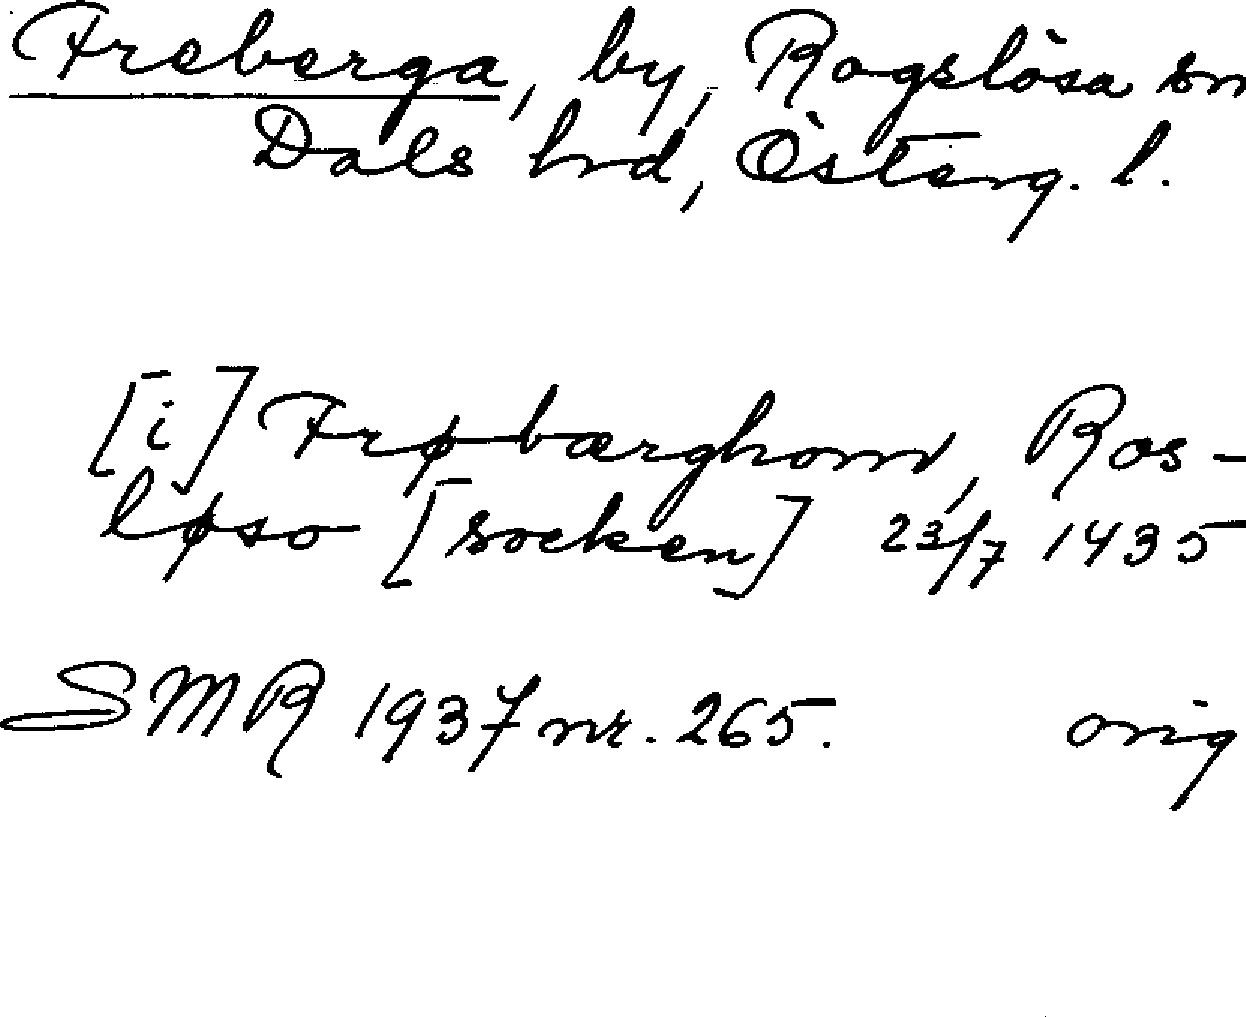 Freberga, by, Rogslösa sn
Dals hrd, Österg. l.
[i] Frøbærghom, Ros-
løso [socken] 23/7 1435
SMR 1937 nr. 265. orig